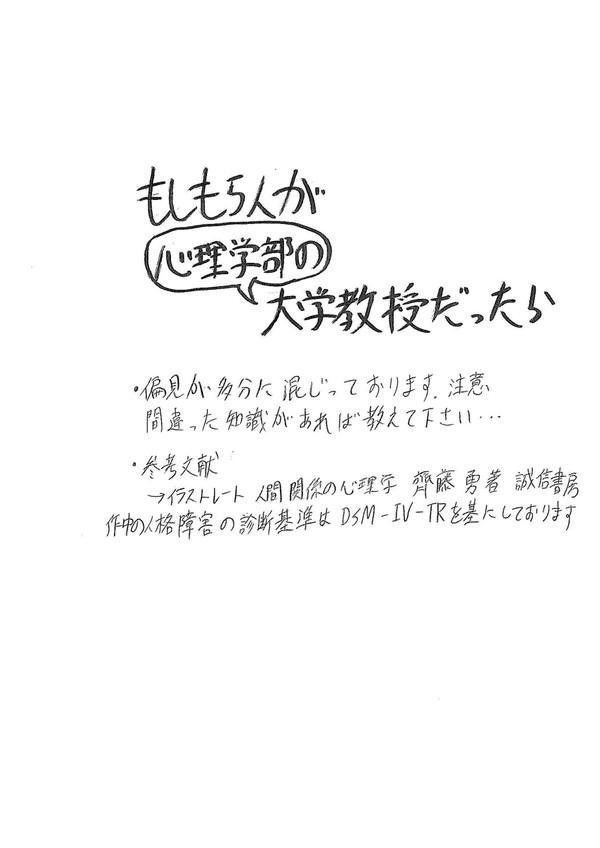 もしも5人が
心理学部の
大学教授だったら
・偏見が多分に混じっております.注意
間違った知識があれば教えて下さい…
・参考文献
→イラストレート 人間関係の心理学 齊藤 勇著 誠信書房
作中の人格障害の診断基準はDSM-IV-TRを基にしております